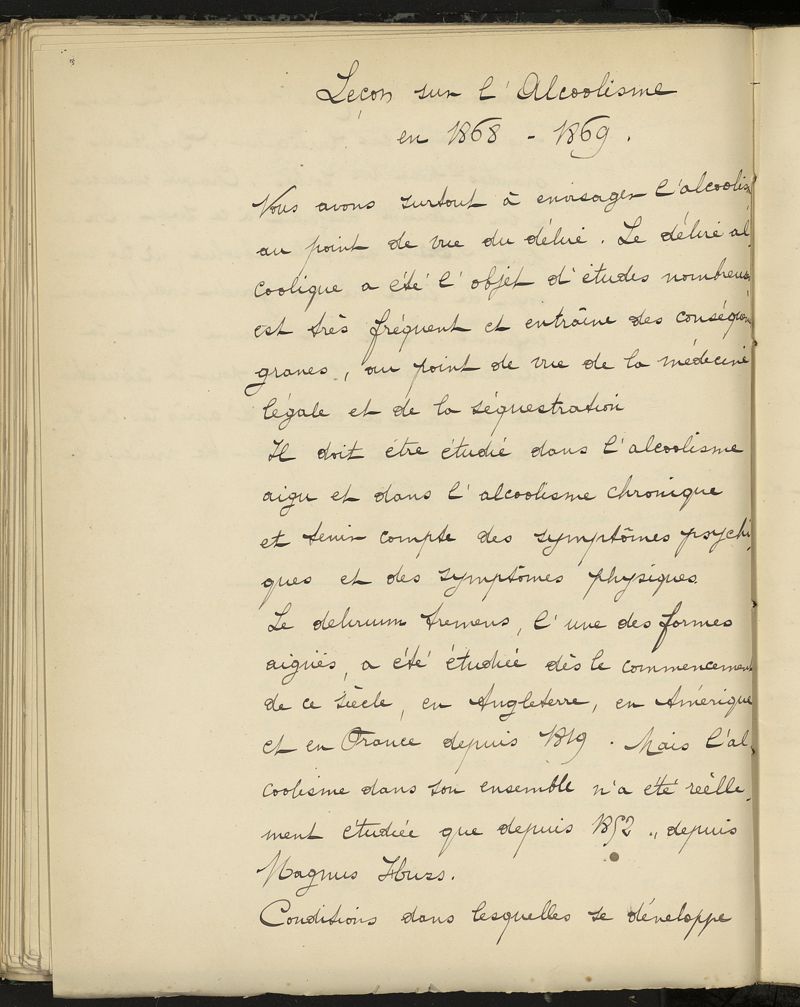 Leçon sur l'Alcoolisme
en 1868 - 1869.
Nous avons surtout à envisager l'alcoolis
au point de vue du délire. Le délire al
coolique a été l'objet d'études nombreus
est très fréquent et entraîne des conséquen
graves, au point de vue de la médecine
légale et de la séquestration
Il doit être étudié dans l'alcoolisme
aigu et dans l'alcoolisme chronique
et tenir compte des symptômes psychi
ques et des symptômes physiques
Le delirium tremens, l'une des formes
aiguës, a été étudiée dès le commencement
de ce siècle, en Angleterre, en Amérique
et en France depuis 1819. Mais l'al
coolisme dans son ensemble n'a été réelle
ment étudiée que depuis 1852, depuis
Magnus Huss.
Conditions dans lesquelles se développe